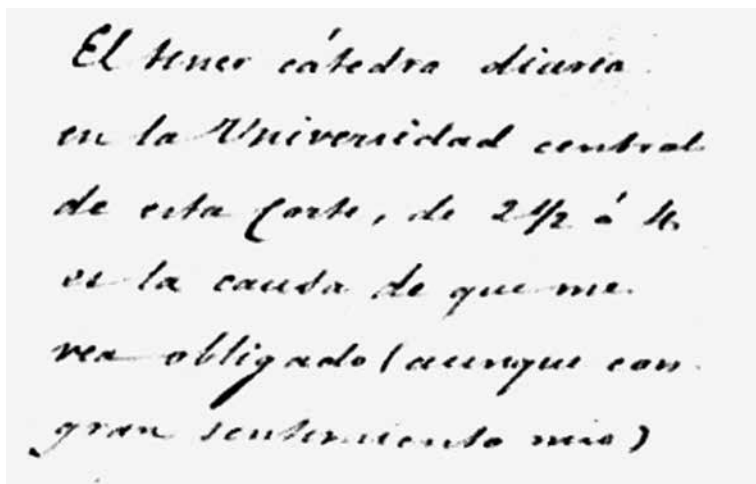 El tener cátedra diaria
en la Universidad central
de esta Corte, de 2 1/2 á 4
es la causa de que me
vea obligado (aunque con
gran sentimiento mio)